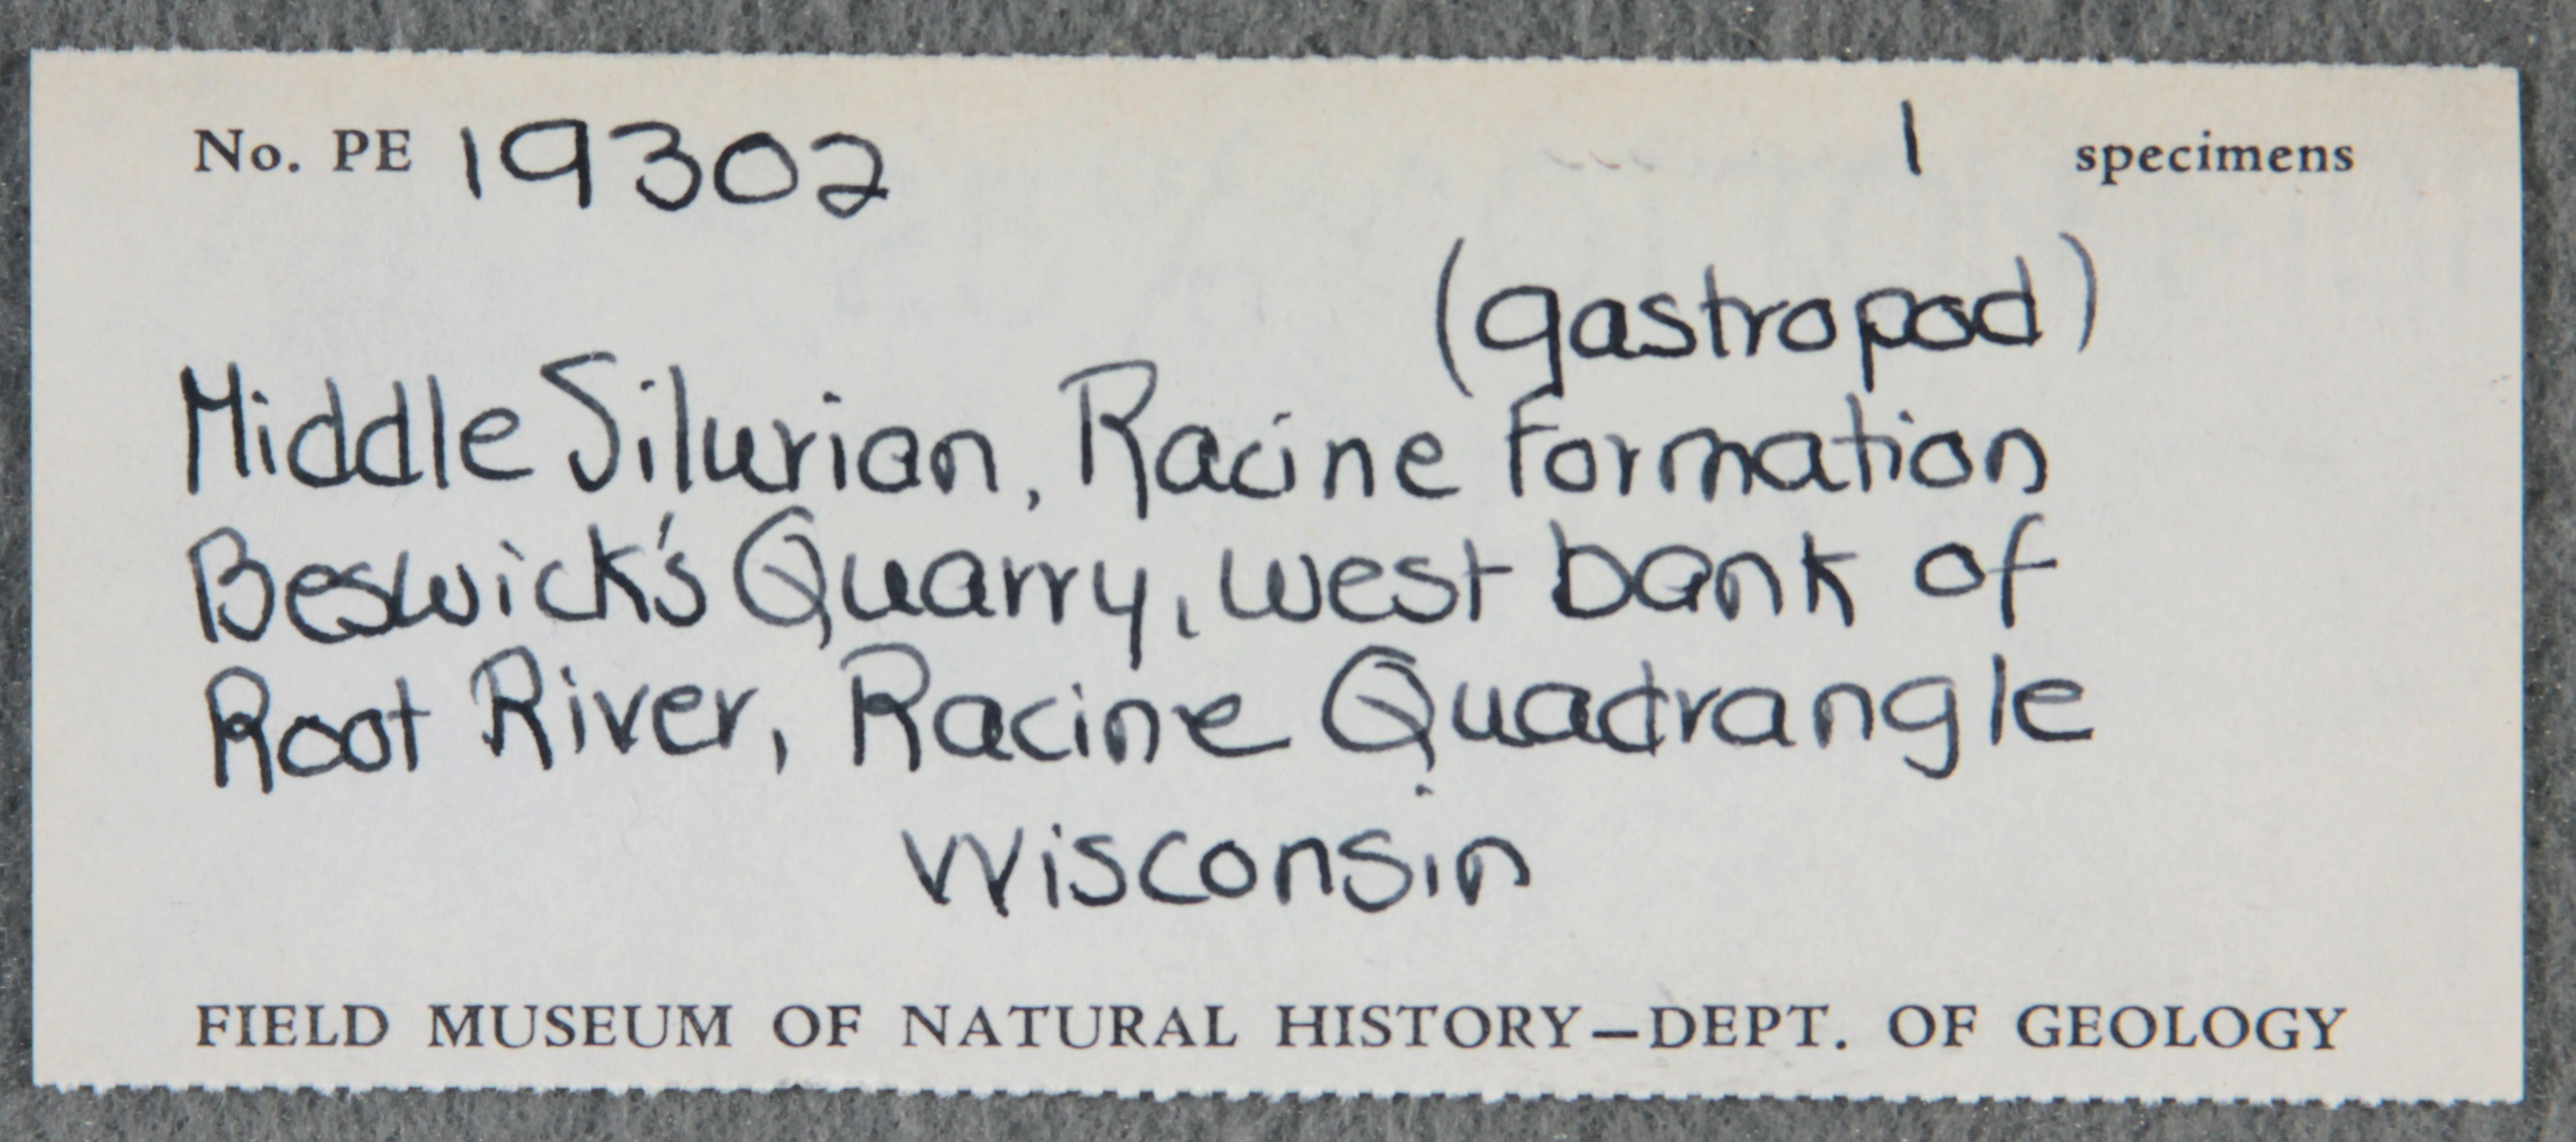 No. PE 19302 1 specimens
(gastropod)
Middle Silurian, Racine Formation
Beswick's Quarry, west bank of
Root River, Racine Quadrangle
Wisconsin
FIELD MUSEUM OF NATURAL HISTORY—DEPT. OF GEOLOGY